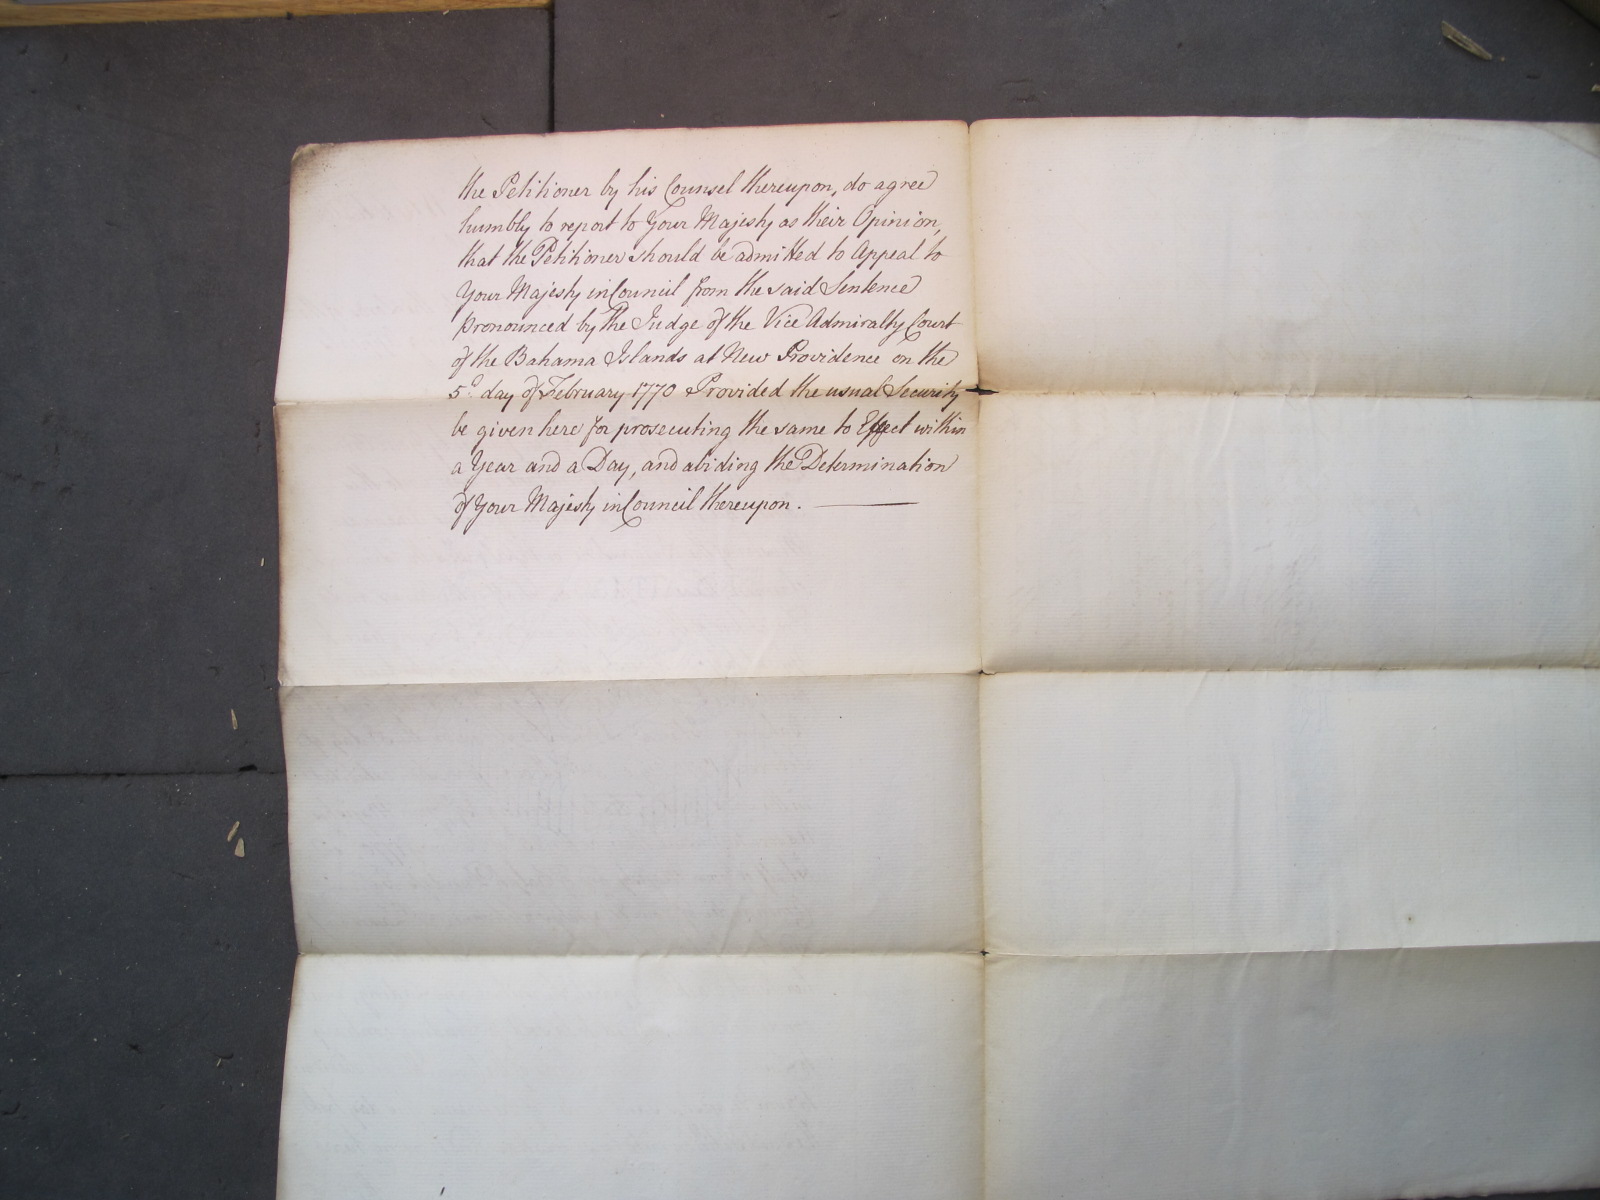 the Petitioner by his Counsel thereupon, do agree
humbly to report to Your Majesty as their Opinion,
that the Petitioner should be admitted to Appeal to
Your Majesty in Council from the said Sentence
pronounced by the Judge of the Vice Admiralty Court
of the Bahama Islands at New Providence on the
5.th day of February 1770 Provided the usual Security
be given here for prosecuting the same to Effect within
a Year and a Day, and abiding the Determination
of Your Majesty in Council thereupon. ———